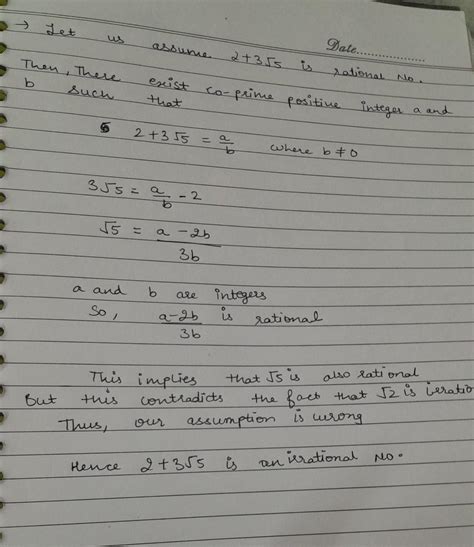 Date..................
→ Let us assume 2+3√5 is rational No.
Then, There exist co-prime positive integer a and
b such that
2+3√5 = a/b where b ≠ 0
3√5 = a/b - 2
√5 = a - 2b / 3b
a and b are integers
So, a-2b / 3b is rational
This implies that √5 is also rational
But this contradicts the fact that √2 is irratio
Thus, our assumption is wrong
Hence 2+3√5 is an irrational No.